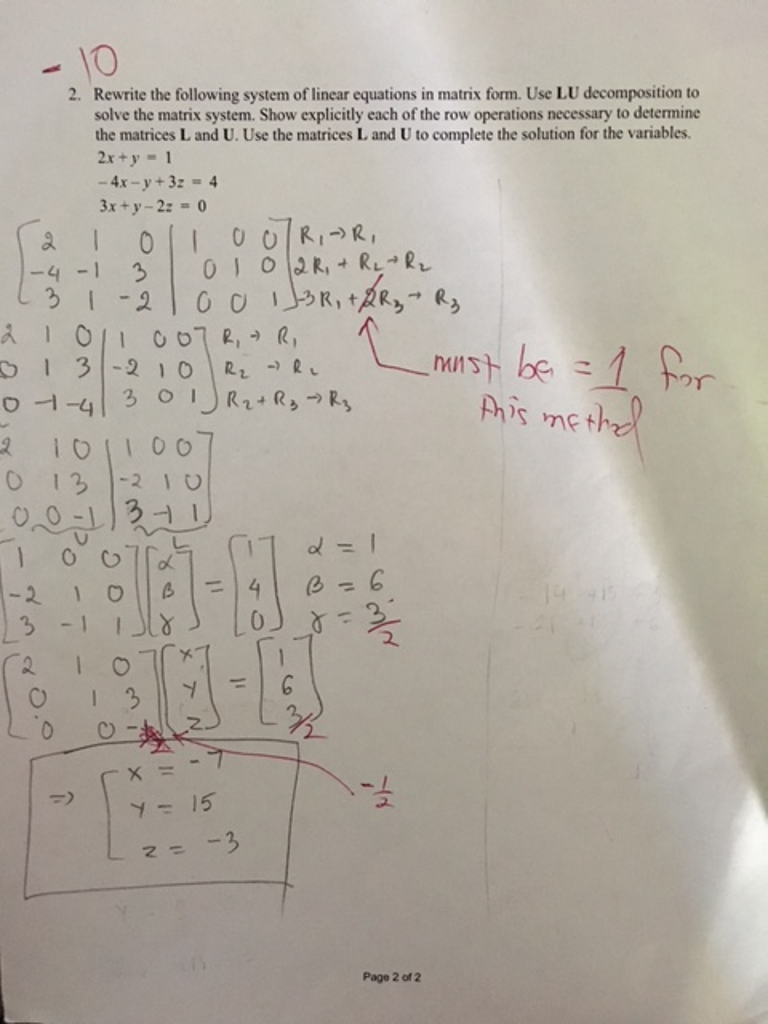 - 10
2. Rewrite the following system of linear equations in matrix form. Use LU decomposition to
solve the matrix system. Show explicitly each of the row operations necessary to determine
the matrices L and U. Use the matrices L and U to complete the solution for the variables.
2x + y = 1
- 4x - y + 3z = 4
3x + y - 2z = 0
2 1 0 | 1 0 0 R₁ → R₁
-4 -1 3 | 0 1 0 2R₁ + R₂ → R₂
3 1 -2 | 0 0 1 -3R₁ + 2R₃ → R₃
2 1 0 | 1 0 0 R₁ → R₁
0 1 3 | -2 1 0 R₂ → R₂
0 -1 -4 | 3 0 1 R₂ + R₃ → R₃
must be = 1 for
this method
2 1 0 | 1 0 0
0 1 3 | -2 1 0
0 0 -1 | 3 -1 1
U L
1 0 0 α 1 α = 1
-2 1 0 β = 4 β = 6
3 -1 1 γ 0 γ = 3/2
2 1 0 x 1
0 1 3 y = 6
0 0 - z 3/2
-1/2
x = -7
⇒ y = 15
z = -3
Page 2 of 2